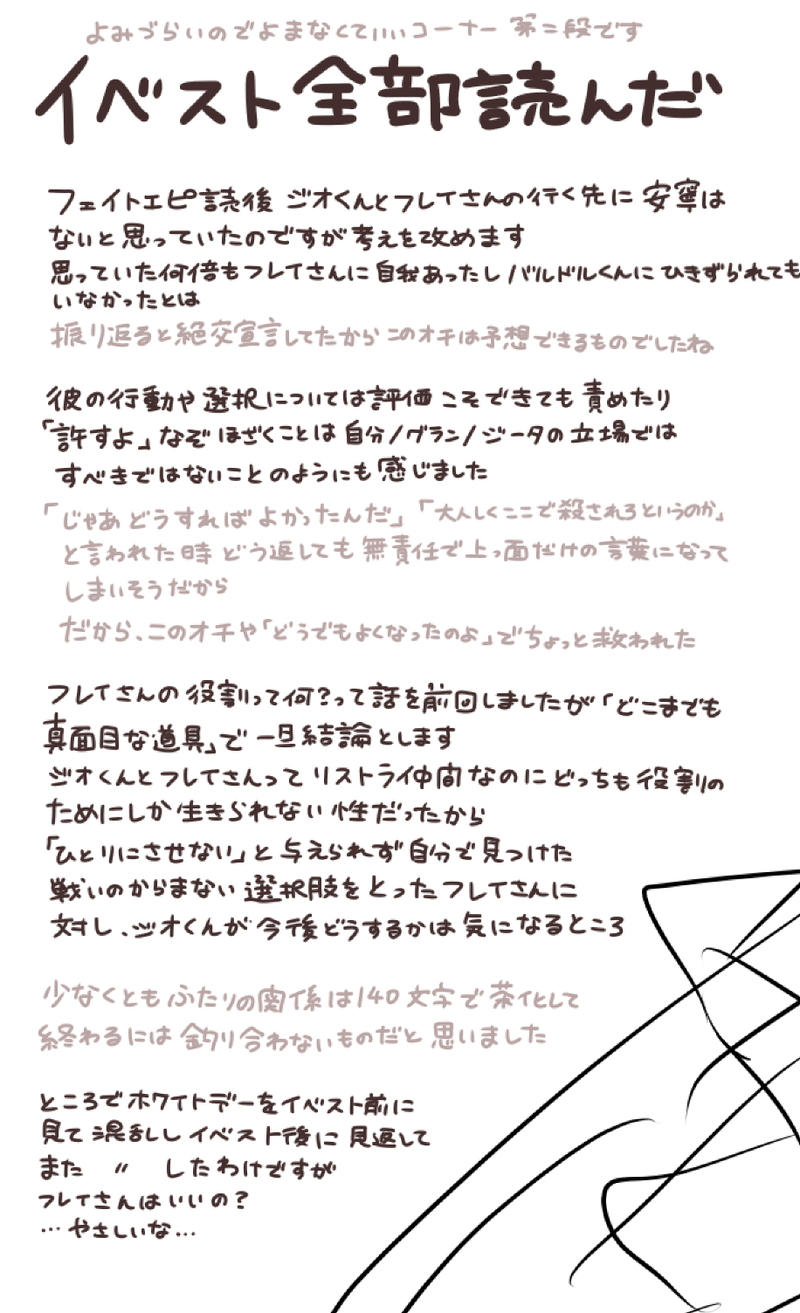 よみづらいのでよまなくていいコーナー 第二段です
イベスト全部読んだ
フェイトエピ読後 ジオくんとフレイさんの行く先に 安寧は
ないと思っていたのですが考えを改めます
思っていた何倍もフレイさんに自我あったし バルドルくんに ひきずられても
いなかったとは
振り返ると絶交宣言してたから このオチは予想できるものでしたね
彼の行動や選択については評価こそできても責めたり
「許すよ」なぞほざくことは自分/グラン/ジータの立場では
すべきではないことのようにも感じました
「じゃあどうすればよかったんだ」「大人しくここで殺されろというのか」
と言われた時どう返しても無責任で上っ面だけの言葉になって
しまいそうだから
だから、このオチや「どうでもよくなったのよ」でちょっと救われた
フレイさんの役割って何?って話を前回しましたが「どこまでも
真面目な道具」で一旦結論とします
ジオくんとフレイさんって リストライ仲間なのにどっちも役割の
ためにしか生きられない性だったから
「ひとりにさせない」と与えられず自分で見つけた
戦いのからまない選択肢をとったフレイさんに
対し、ジオくんが今後どうするかは気になるところ
少なくともふたりの関係は140文字で茶化して
終わるには釣り合わないものだと思いました
ところでホワイトデーをイベスト前に
見て混乱しイベスト後に見返して
また 〃 したわけですが
フレイさんはいいの?
…やさしいな…